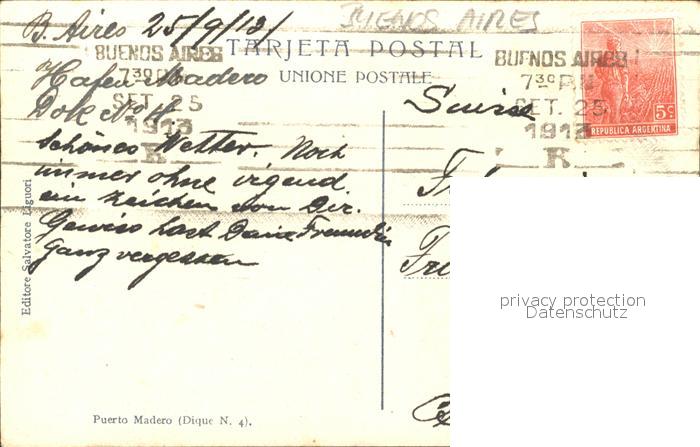 BUENOS AIRES
B. Aires 25/9/13/
TARJETA POSTAL
UNIONE POSTALE
BUENOS AIRES
7³⁰ P.
SET. 25
1913
BUENOS AIRES
7³⁰ P.M
SET. 25
1913
5c
REPUBLICA ARGENTINA
Hafen Madero
Dok No 4
Suisse
Schönes Wetter. Noch
immer ohne irgend
ein Zeichen von Dir.
Gewiss hast Deine Freundin
ganz vergessen
Editore Salvatore Liguori
Puerto Madero (Dique N. 4).
privacy protection
Datenschutz